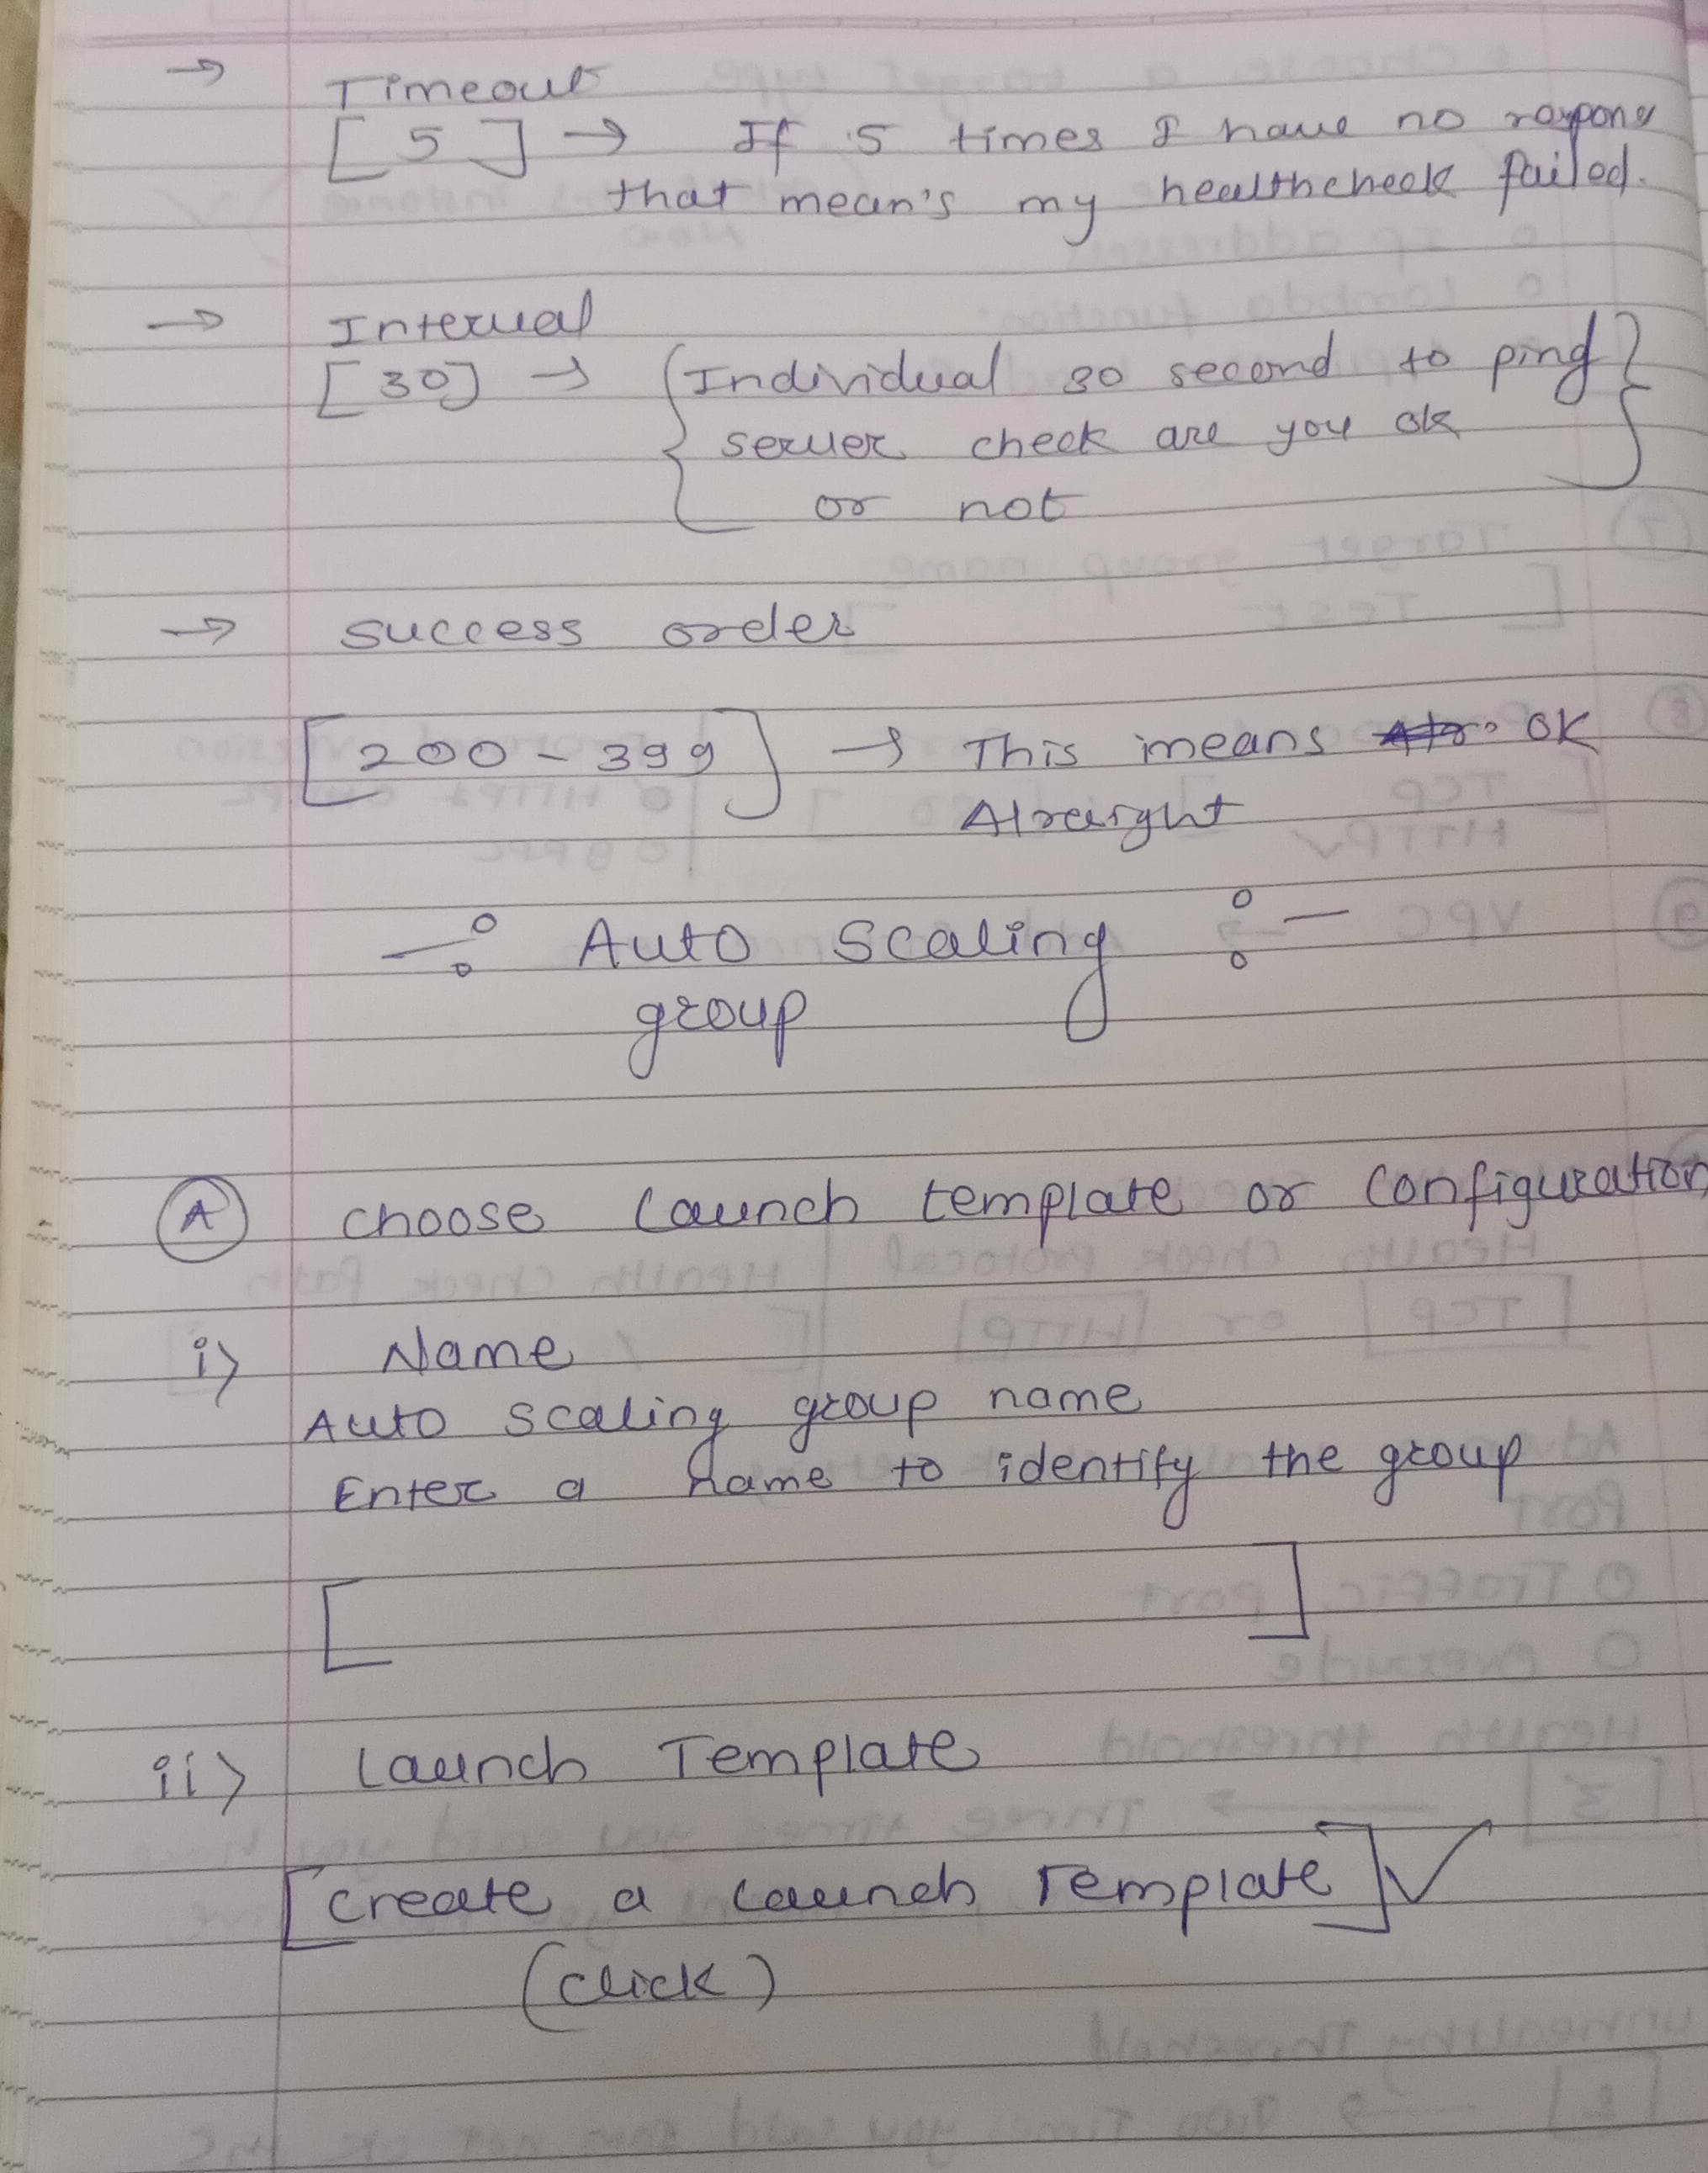 → Timeout
[ 5 ] → If 5 times I have no
that mean's my healthcheck failed.
→ Interval
[ 30 ] → { Individual 30 second to ping }
server check are you ok
or not
→ success order
[ 200 - 399 ] → This means OK
Alraight
Auto Scaling
group
(A) choose Launch template or Configuration
i) Name
Auto scaling group name
Enter a name to identify the group
[ ]
ii) Launch Template
[ create a Launch Template ] ✓
(click)